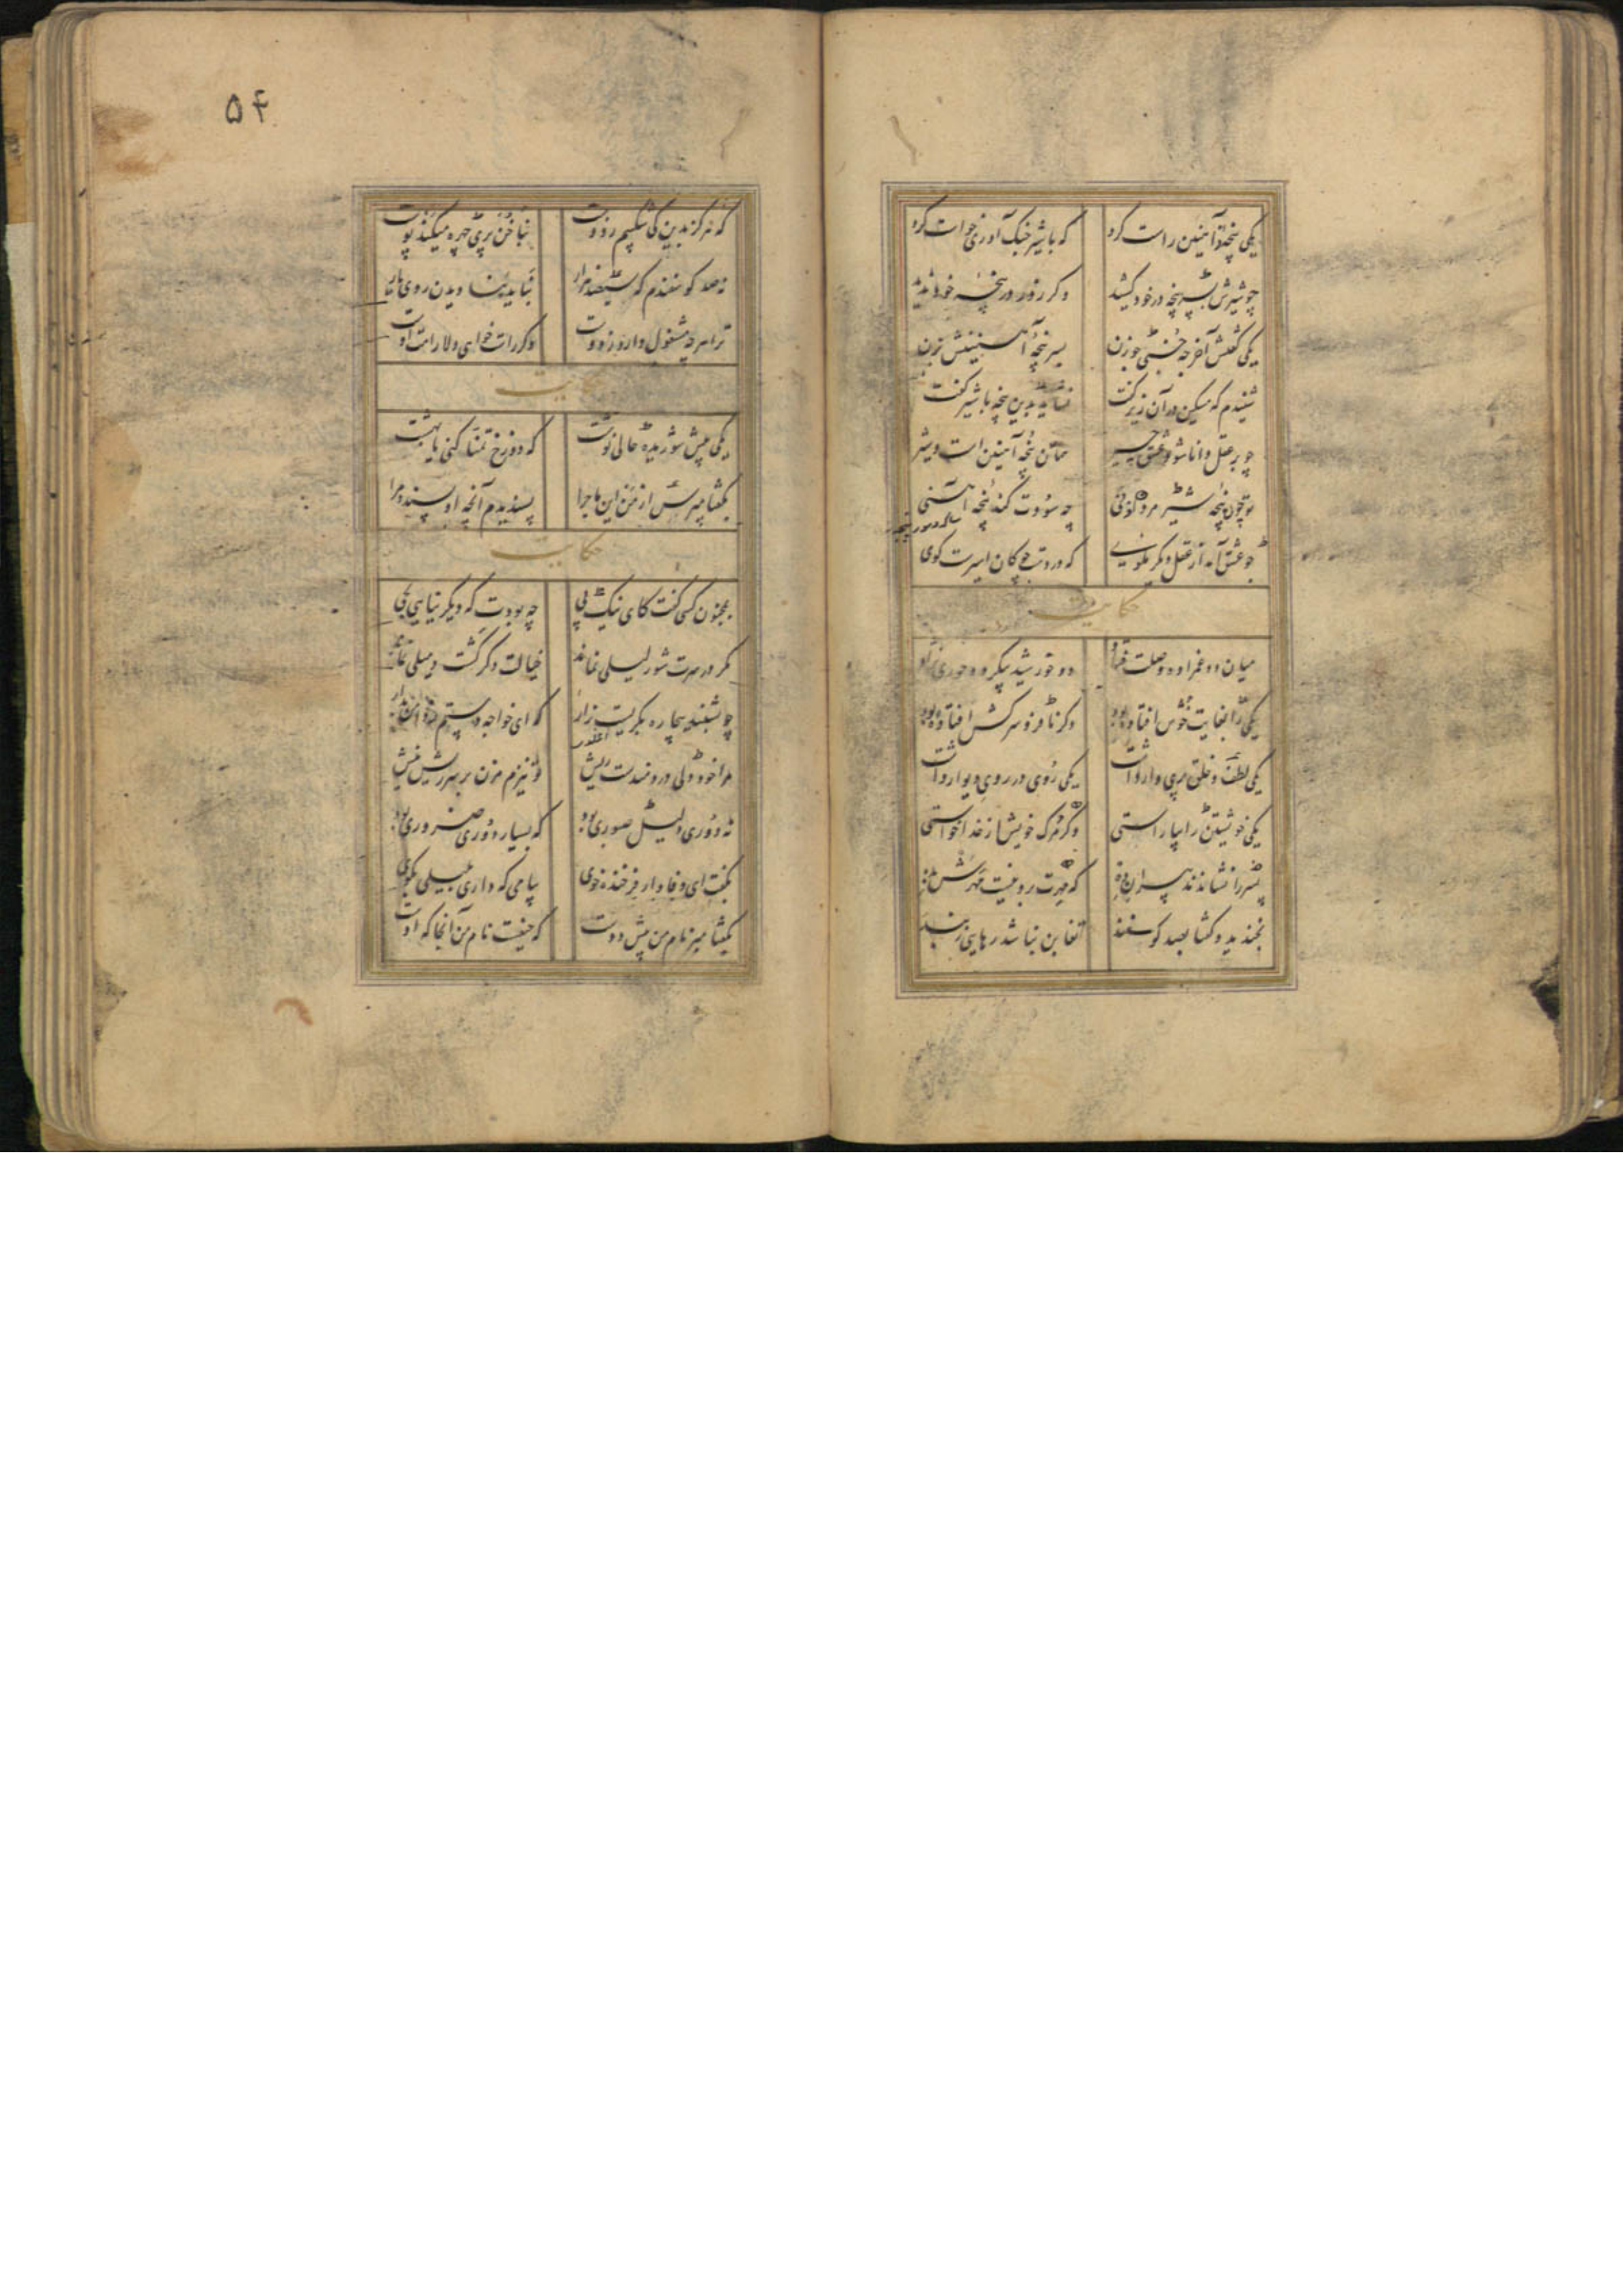 یکی پنجهٔ آهنین راست کرد که با شیر جنگ آوری خواست کرد
چو شیرش بسرپنجه در خود کشید دگر زور در پنجهٔ خود ندید
یکی گفتش آخر چه خسبی چو زن بسرپنجهٔ آهنینش بزن
شنیدم که مسکین در آن زیر گفت نشاید بدین پنجه با شیر گفت
چو بر عقل دانا شود عشق چیر همان پنجه آهنین است و شیر
تو چون پنجهٔ شیر مرد اوژنی چه سودت کند پنجهٔ آهنی
چو عشق آمد از عقل دیگر مگوی که در دست چوگان اسیرست گوی
حکایت
میان دو عمزاده وصلت فتاد دو خورشید پیکر دو حوری نژاد
یکی را بغایت خوش افتاده بود دگر نافر و سرکش افتاده بود
یکی لطف و خلق پری وار داشت یکی روی در روی دیوار داشت
یکی خویشتن را بیاراستی دگر مرگ خویش از خدا خواستی
پسر را نشاندند پیران ده که مهرت برو نیست مهرش بده
بخندید و گفتا بصد گوسفند تغابن نباشد رهایی ز بند
۵۴
که هرگز بدین کی شکیبم ز دوست بناخن پری چهره میکند پوست
نه صد گوسفندم که سیصد هزار نباید بنادیدن روی یار
ترا هر چه مشغول دارد ز دوست گر راست خواهی دلارامت اوست
حکایت
یکی پیش شوریده حالی نوشت که دوزخ تمنا کنی یا بهشت
بگفتا مپرس از من این ماجرا پسندیدم آنچه او پسندد مرا
حکایت
بمجنون کسی گفت کای نیک پی چه بودت که دیگر نیایی بحی
مگر در سرت شور لیلی نماند خیالت دگر گشت و میلی نماند
چو بشنید بیچاره بگریست زار که ای خواجه دستم ز دامن بدار
مرا خود دلی دردمندست ریش تو نیزم مزن بر سر ریش نیش
نه دوری دلیل صبوری بود که بسیار دوری ضروری بود
بگفت ای وفادار فرخنده خوی پیامی که داری بلیلی بگوی
بگفتا مبر نام من پیش دوست که حیفست نام من آنجا که اوست